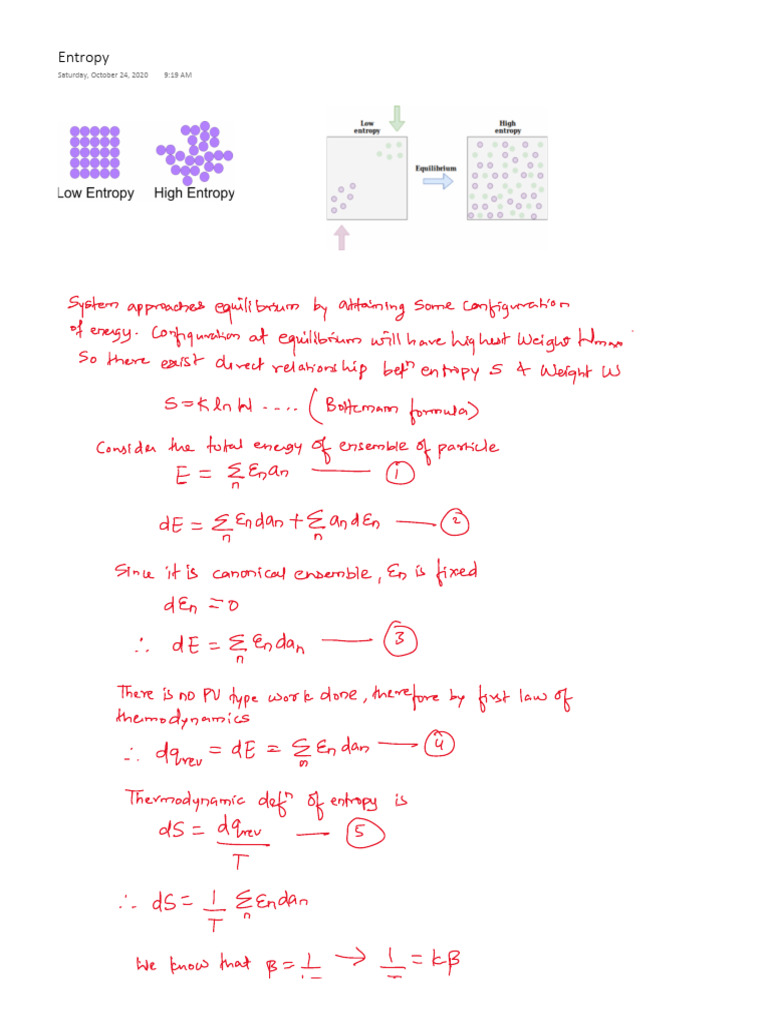 Entropy
Saturday, October 24, 2020 9:19 AM
Low Entropy High Entropy
Low entropy
Equilibrium
High entropy
System approaches equilibrium by attaining some configuration
of energy. Configuration at equilibrium will have highest weight Wmax.
So there exist direct relationship betⁿ entropy S & weight W
S = K ln W .... (Boltzmann formula)
Consider the total energy of ensemble of particle
E = Σₙ Ɛₙaₙ —— ①
dE = Σₙ Ɛₙdaₙ + Σₙ aₙdƐₙ —— ②
Since it is canonical ensemble, Ɛₙ is fixed
dƐₙ = 0
∴ dE = Σₙ Ɛₙdaₙ —— ③
There is no PV type work done, therefore by first law of
thermodynamics
∴ dqrev = dE = Σₙ Ɛₙdaₙ —— ④
Thermodynamic defⁿ of entropy is
dS = dqrev / T —— ⑤
∴ dS = 1/T Σₙ Ɛₙdaₙ
We know that β = 1/ → 1/ = kβ